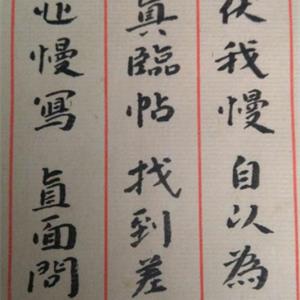 我慢自以為
真臨帖找到差
慢寫直面問